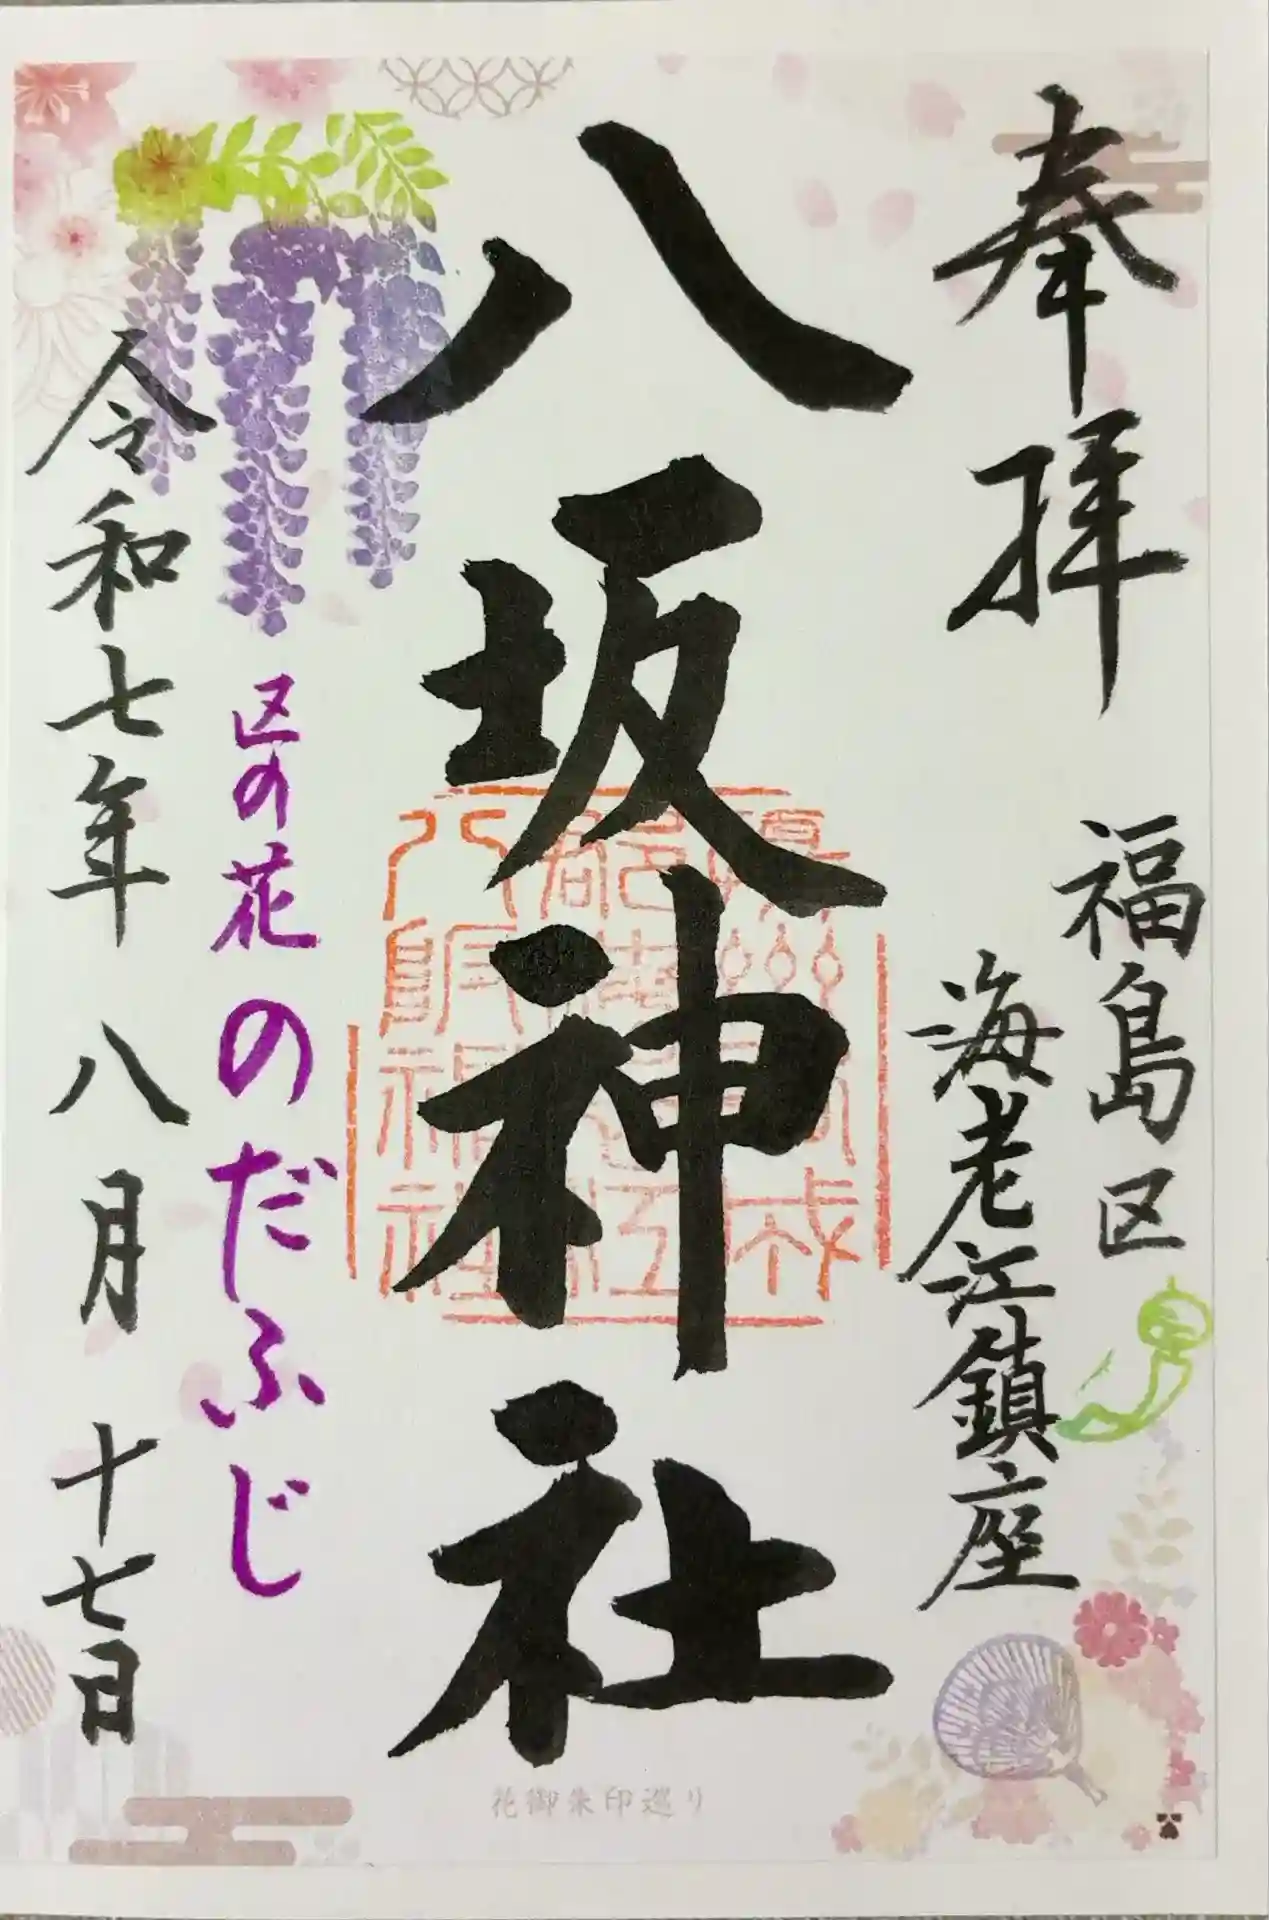 奉拝
福島区
海老江鎮座
八坂神社
区の花 のだふじ
令和七年 八月 十七日
花御朱印巡り